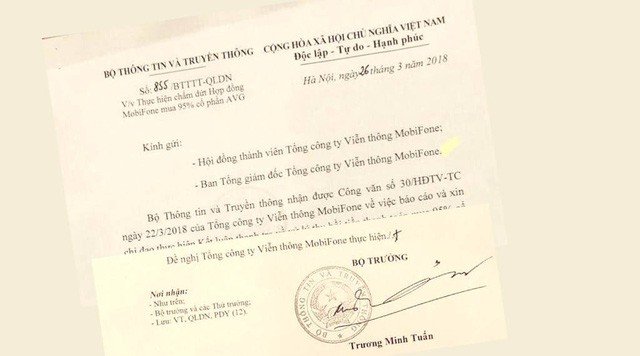 BỘ THÔNG TIN VÀ TRUYỀN THÔNG
CỘNG HÒA XÃ HỘI CHỦ NGHĨA VIỆT NAM
Độc lập - Tự do - Hạnh phúc
Số: 855/BTTTT-QLDN
V/v Thực hiện chấm dứt Hợp đồng
MobiFone mua 95% cổ phần AVG
Hà Nội, ngày 26 tháng 3 năm 2018
Kính gửi:
- Hội đồng thành viên Tổng công ty Viễn thông MobiFone;
- Ban Tổng giám đốc Tổng công ty Viễn thông MobiFone.
Bộ Thông tin và Truyền thông nhận được Công văn số 30/HĐTV-TC
ngày 22/3/2018 của Tổng công ty Viễn thông MobiFone về việc báo cáo và xin
chỉ đạo thực hiện Kết luận thanh tra
Đề nghị Tổng công ty Viễn thông MobiFone thực hiện./.
BỘ TRƯỞNG
Nơi nhận:
- Như trên;
- Bộ trưởng và các Thứ trưởng;
- Lưu: VT, QLDN, PDY (12).
BỘ THÔNG TIN VÀ TRUYỀN THÔNG
Trương Minh Tuấn